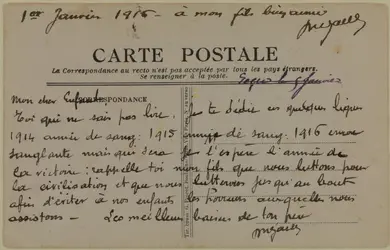 1er Janvier 1916 - à mon fils bien aimé
CARTE POSTALE
La Correspondance au recto n'est pas acceptée par tous les pays étrangers.
Se renseigner à la poste.
CORRESPONDANCE
Mon cher Enfant
Toi qui ne sais pas lire, je te dédie ces quelques lignes
1914 année de sang: 1915 année de sang. 1916 encore
sanglante mais qui sera je l'espère l'année de
la victoire: rappelle toi mon fils que nous luttons pour
la civilisation et que nous lutterons jusqu'au bout
afin d'éviter à nos enfants les horreurs auxquelles nous
assistons - Les meilleurs baisers de ton père